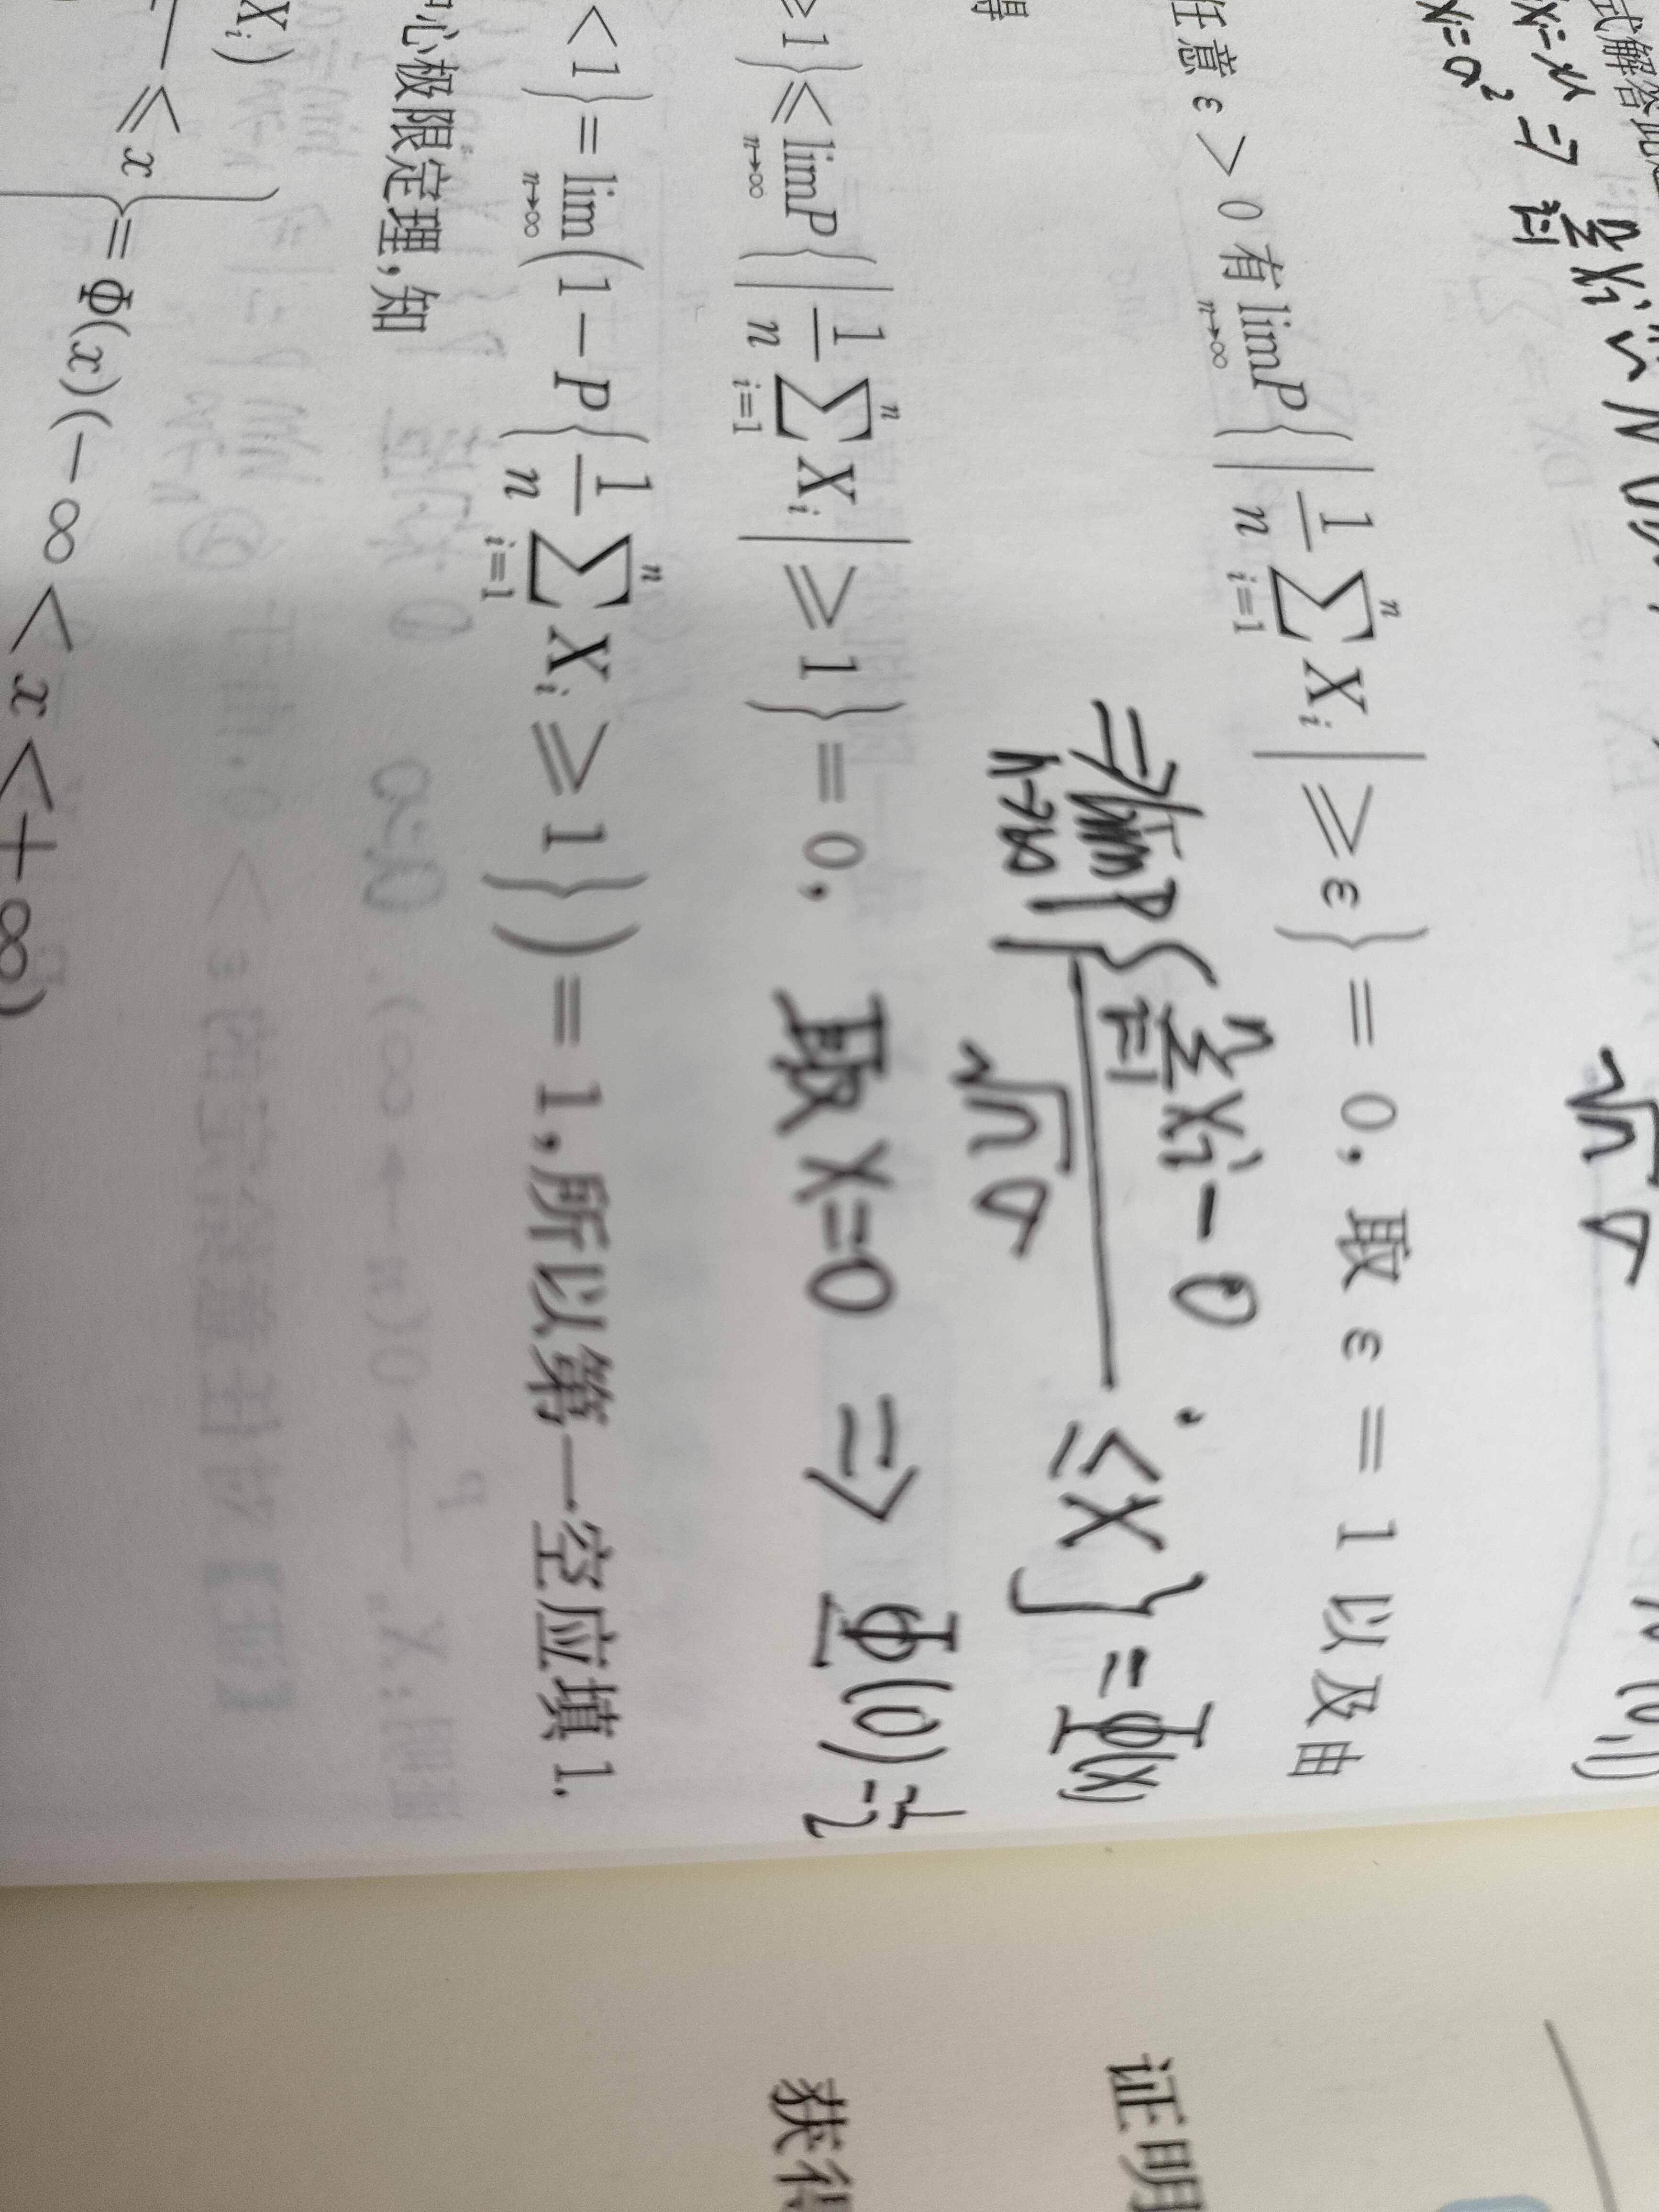 式解答此
Xi=μ ⇒ \sum_{i=1}^{n} Xi ~ N(
Xi=σ² √n σ
任意 ε > 0 有 \lim_{n→∞} P{|\frac{1}{n}\sum_{i=1}^{n} X_i| ≥ ε} = 0, 取 ε = 1 以及由
得
⇒ \lim_{n→∞} P{\frac{\sum_{i=1}^{n} Xi - 0}{√n σ} ≤ X} = Φ(X)
≥ 1} ≤ \lim_{n→∞} P{|\frac{1}{n}\sum_{i=1}^{n} X_i| ≥ 1} = 0, 取 X=0 ⇒ Φ(0)=\frac{1}{2}
< 1} = \lim_{n→∞} (1 - P{\frac{1}{n}\sum_{i=1}^{n} X_i ≥ 1}) = 1, 所以第一空应填 1.
心极限定理, 知
X_i)
≤ x} = Φ(x)(-∞ < x < +∞)
证明
获得